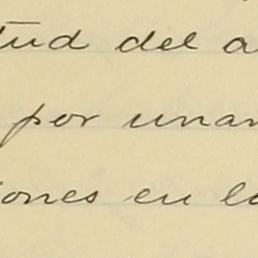 tud del a
por unan
iones en la